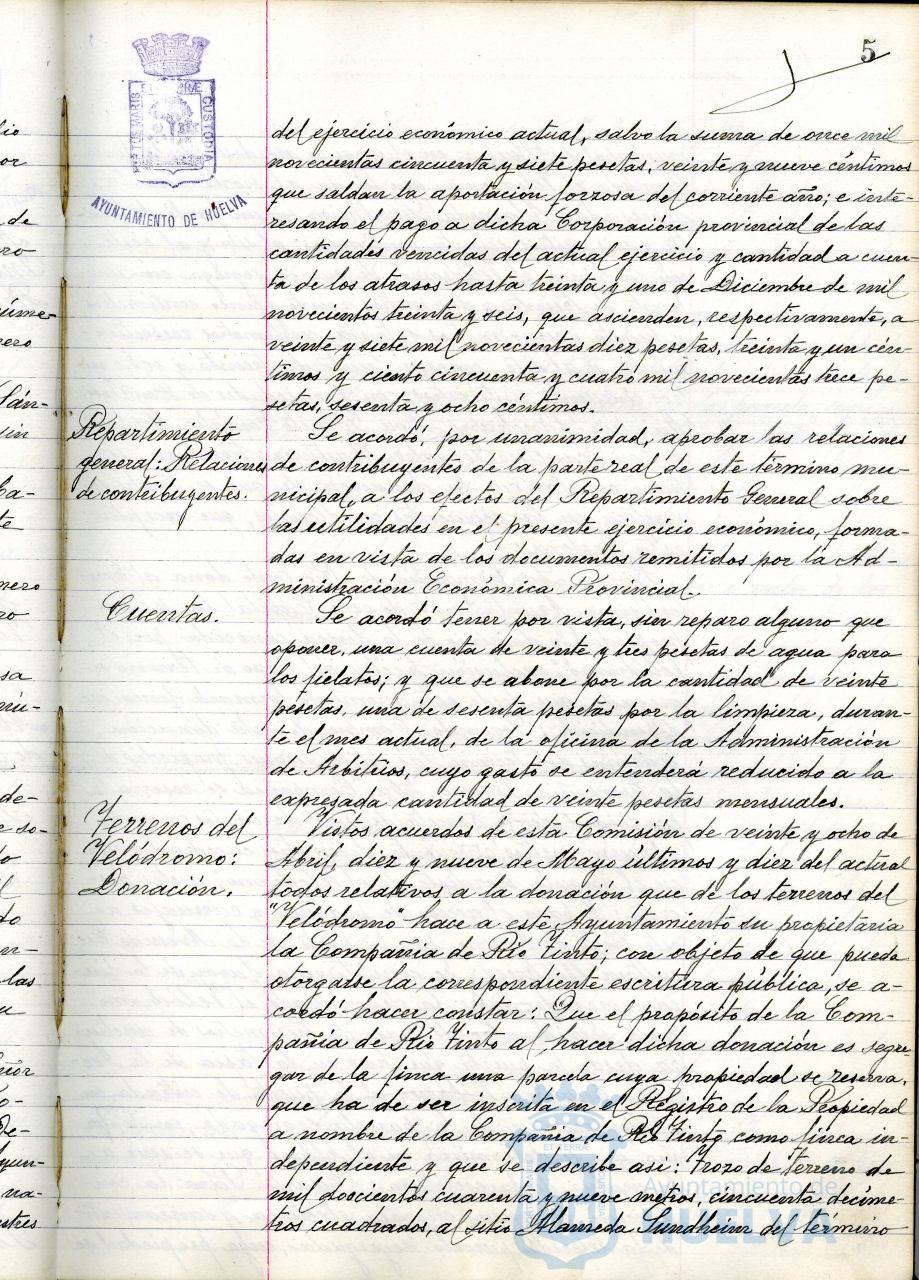 5
PORTUS MARIS ET TERRÆ CUSTODIA
AYUNTAMIENTO DE HUELVA
del ejercicio económico actual, salvo la suma de once mil
novecientas cincuenta y siete pesetas, veinte y nueve céntimos
que saldan la aportación forzosa del corriente año; e inte-
resando el pago a dicha Corporación provincial de las
cantidades vencidas del actual ejercicio y cantidad a cuen-
ta de los atrasos hasta treinta y uno de Diciembre de mil
novecientos treinta y seis, que ascienden, respectivamente, a
veinte y siete mil novecientas diez pesetas, treinta y un cén-
timos y ciento cincuenta y cuatro mil novecientas trece pe-
setas, sesenta y ocho céntimos.
Repartimiento
general: Relaciones
de contribuyentes.
Se acordó, por unanimidad, aprobar las relaciones
de contribuyentes de la parte real de este término mu-
nicipal, a los efectos del Repartimiento General sobre
las utilidades en el presente ejercicio económico, forma-
das en vista de los documentos remitidos por la Ad-
ministración Económica Provincial.
Cuentas.
Se acordó tener por vista, sin reparo alguno que
oponer, una cuenta de veinte y tres pesetas de agua para
los fielatos; y que se abone por la cantidad de veinte
pesetas, una de sesenta pesetas por la limpieza, duran-
te el mes actual, de la oficina de la Administración
de Arbitrios, cuyo gasto se entenderá reducido a la
expresada cantidad de veinte pesetas mensuales.
Terrenos del
Velódromo:
Donación.
Vistos acuerdos de esta Comisión de veinte y ocho de
Abril, diez y nueve de Mayo últimos y diez del actual
todos relativos a la donación que de los terrenos del
"Velódromo" hace a este Ayuntamiento su propietaria
la Compañia de Río Tinto; con objeto de que pueda
otorgarse la correspondiente escritura pública, se a-
cordó hacer constar: Que el propósito de la Com-
pañia de Río Tinto al hacer dicha donación es segre-
gar de la finca una parcela cuya propiedad se reserva,
que ha de ser inscrita en el Registro de la Propiedad
a nombre de la Compañia de Río Tinto como finca in-
dependiente y que se describe asi: Trozo de terreno de
mil doscientos cuarenta y nueve metros, cincuenta decíme-
tros cuadrados, al sitio Alameda Sundheim del término
Ayuntamiento de
HUELVA